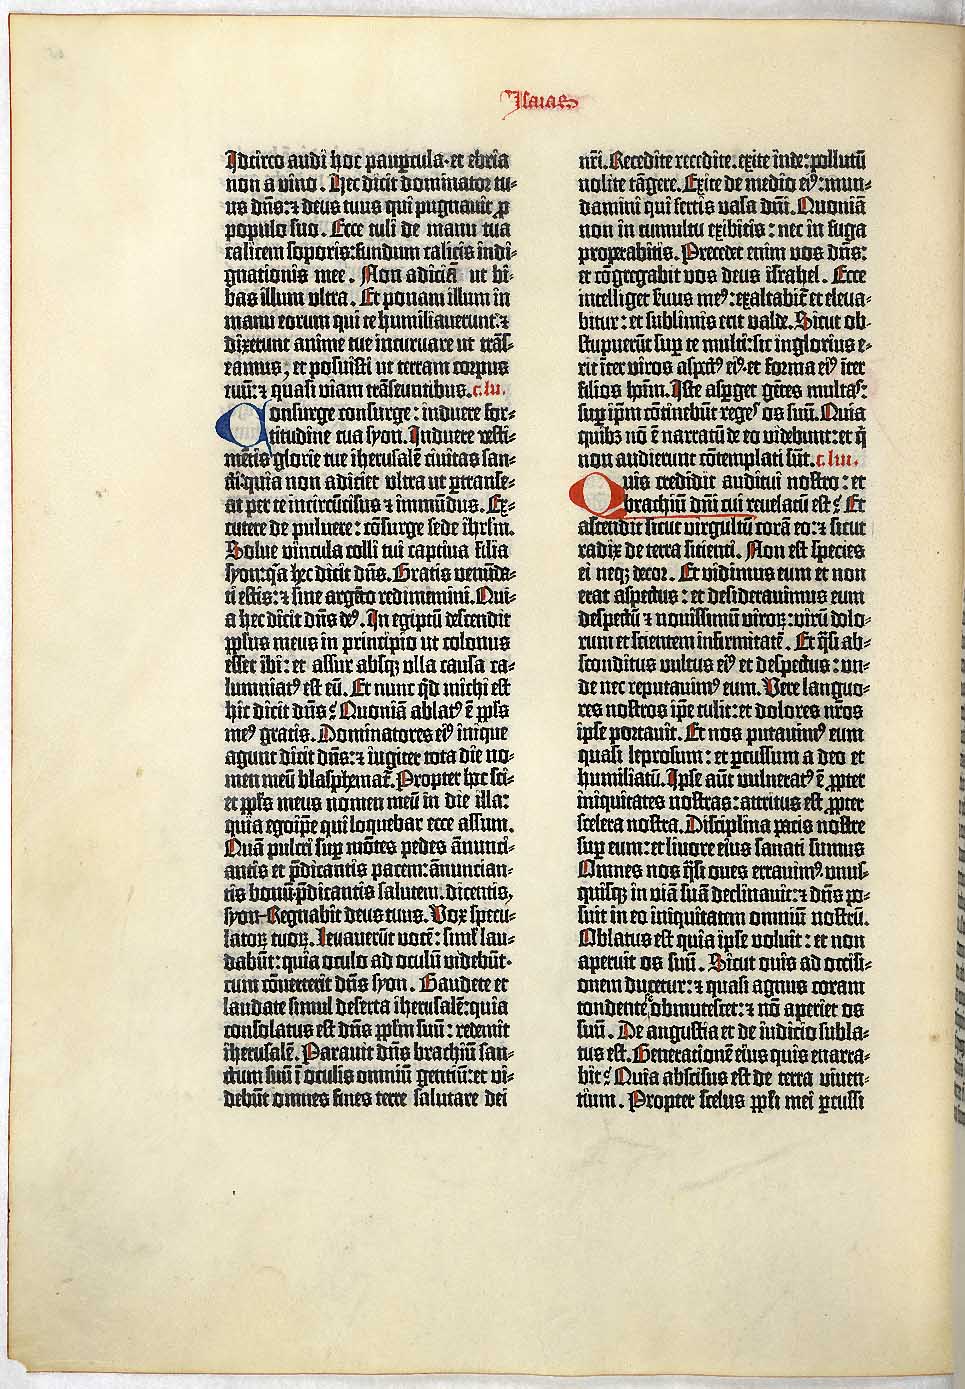 Isaias
Idcirco audi hoc paup̄cula·et ebria
non a vino. Hec dicit dominator tu⸗
us dn̄s:⁊ deus tuus qui pugnavit ꝓ
populo suo. Ecce tuli de manu tua
calicem soporis:fundum calicis indi⸗
gnationis mee. Non adiciā ut bi⸗
bas illum ultra. Et ponam illum in
manu eorum qui te humiliaverunt:⁊
dixerunt anime tue incurvare ut trās⸗
eamus; et posuisti ut terram corpus
tuū:⁊ quasi viam trāseuntibus. c. lii.
Consurge consurge: induere for⸗
titudine tua syon. Induere vesti⸗
mētis glorie tue iherusalē civitas san⸗
cti:quia non adiciet ultra ut ꝑtranse⸗
at per te incircūcisus ⁊ immūdus. Ex⸗
cutere de pulvere: cōsurge sede ihrl̄m.
Solve vincula colli tui captiva filia
syon:qa hec dicit dn̄s. Gratis venūda⸗
ti estis: ⁊ sine argēto redimemini. Qui⸗
a hec dicit dn̄s deꝰ. In egiptū descendit
ppl̄us meus in principio ut colonus
esset ibi: et assur absqꝫ ulla causa ca⸗
lumniatꝰ est eū. Et nunc qd̄ michi est
hic dicit dn̄s? Quoniā ablatꝰ ē ppl̄s
meꝰ gratis. Dominatores eiꝰ inique
agunt dicit dn̄s:⁊ iugiter tota die no⸗
men meū blasphemat̄. Propter hoc sci⸗
et ppl̄s meus nomen meū in die illa:
quia ego ip̄e qui loquebar ecce assum.
Quā pulcri sup̄ mōtes pedes ānunci⸗
antis et p̄dicantis pacem: ānuncian⸗
tis bonū:p̄dicantis salutem. dicentis,
syon–Regnabit deus tuus. Vox specu⸗
latoꝝ tuoꝝ. levaverūt vocē: simul̄ lau⸗
dabūt: quia oculo ad oculū videbūt·
cum cōverterit dn̄s syon. Gaudete et
laudate simul deserta iherusalē:quia
consolatus est dn̄s ppl̄m suū: redemit
iherusalē. Paravit dn̄s brachiū san⸗
ctum suū ī oculis omniū gentiū:et vi⸗
debūt omnes fines terre salutare dei
nr̄i. Recedite recedite. exite inde: pollutū
nolite tāgere. Exite de medio eiꝰ: mun⸗
damini qui fertis vasa dn̄i. Quoniā
non in tumultu exibitis: nec in fuga
properabitis. Precedet enim vos dn̄s:
et cōgregabit vos deus israhel. Ecce
intelliget s̄vus meꝰ: exaltabit̄ et eleva⸗
bitur: et sublimis erit valde. Sicut ob⸗
stupuerūt sup̄ te multi: sic inglorius e⸗
rit īter viros aspctꝰ eiꝰ·et forma eiꝰ īter
filios hoīm. Iste asp̄get gētes multas:
sup̄ ip̄m cōtinebūt reges os suū. Quia
quibꝫ nō ē narratū de eo viderunt: et q̄
non audierunt cōtemplati sūt. c. liii.
Quis credidit auditui nostro: et
brachiū dn̄i cui revelatū est? Et
ascendit sicut virgultū corā eo: ⁊ sicut
radix de terra sitienti. Non est species
ei neqꝫ decor. Et vidimus eum et non
erat aspectus: et desideravimus eum
despectū ⁊ novissimū viroꝝ: virū dolo⸗
rum et scientem infirmitatē. Et q̄si ab⸗
sconditus vultus eiꝰ et despectus: un⸗
de nec reputavimꝰ eum. Vere languo⸗
res nostros ip̄e tulit: et dolores nr̄os
ipse portavit. Et nos putavimꝰ eum
quasi leprosum: et ꝑcussum a deo et
humiliatū. Ipse aūt vulneratꝰ ē ꝓpter
iniquitates nostras: attritus est ꝓpter
scelera nostra. Disciplina pacis nostre
sup̄ eum: et livore eius sanati sumus
Omnes nos q̄si oves erravimꝰ. unus⸗
quisqꝫ in viā suā declinavit: ⁊ dn̄s po⸗
suit in eo iniquitatem omniū nostrū.
Oblatus est quia ipse voluit: et non
aperuit os suū. Sicut ovis ad occisi⸗
onem ducetur: ⁊ quasi agnus coram
tondente obmutescet: ⁊ nō aperiet os
suū. De angustia et de iudicio subla⸗
tus est. Generationē eius quis enarra⸗
bit? Quia abscisus est de terra viven⸗
tium. Propter scelus ppl̄i mei ꝑcussi